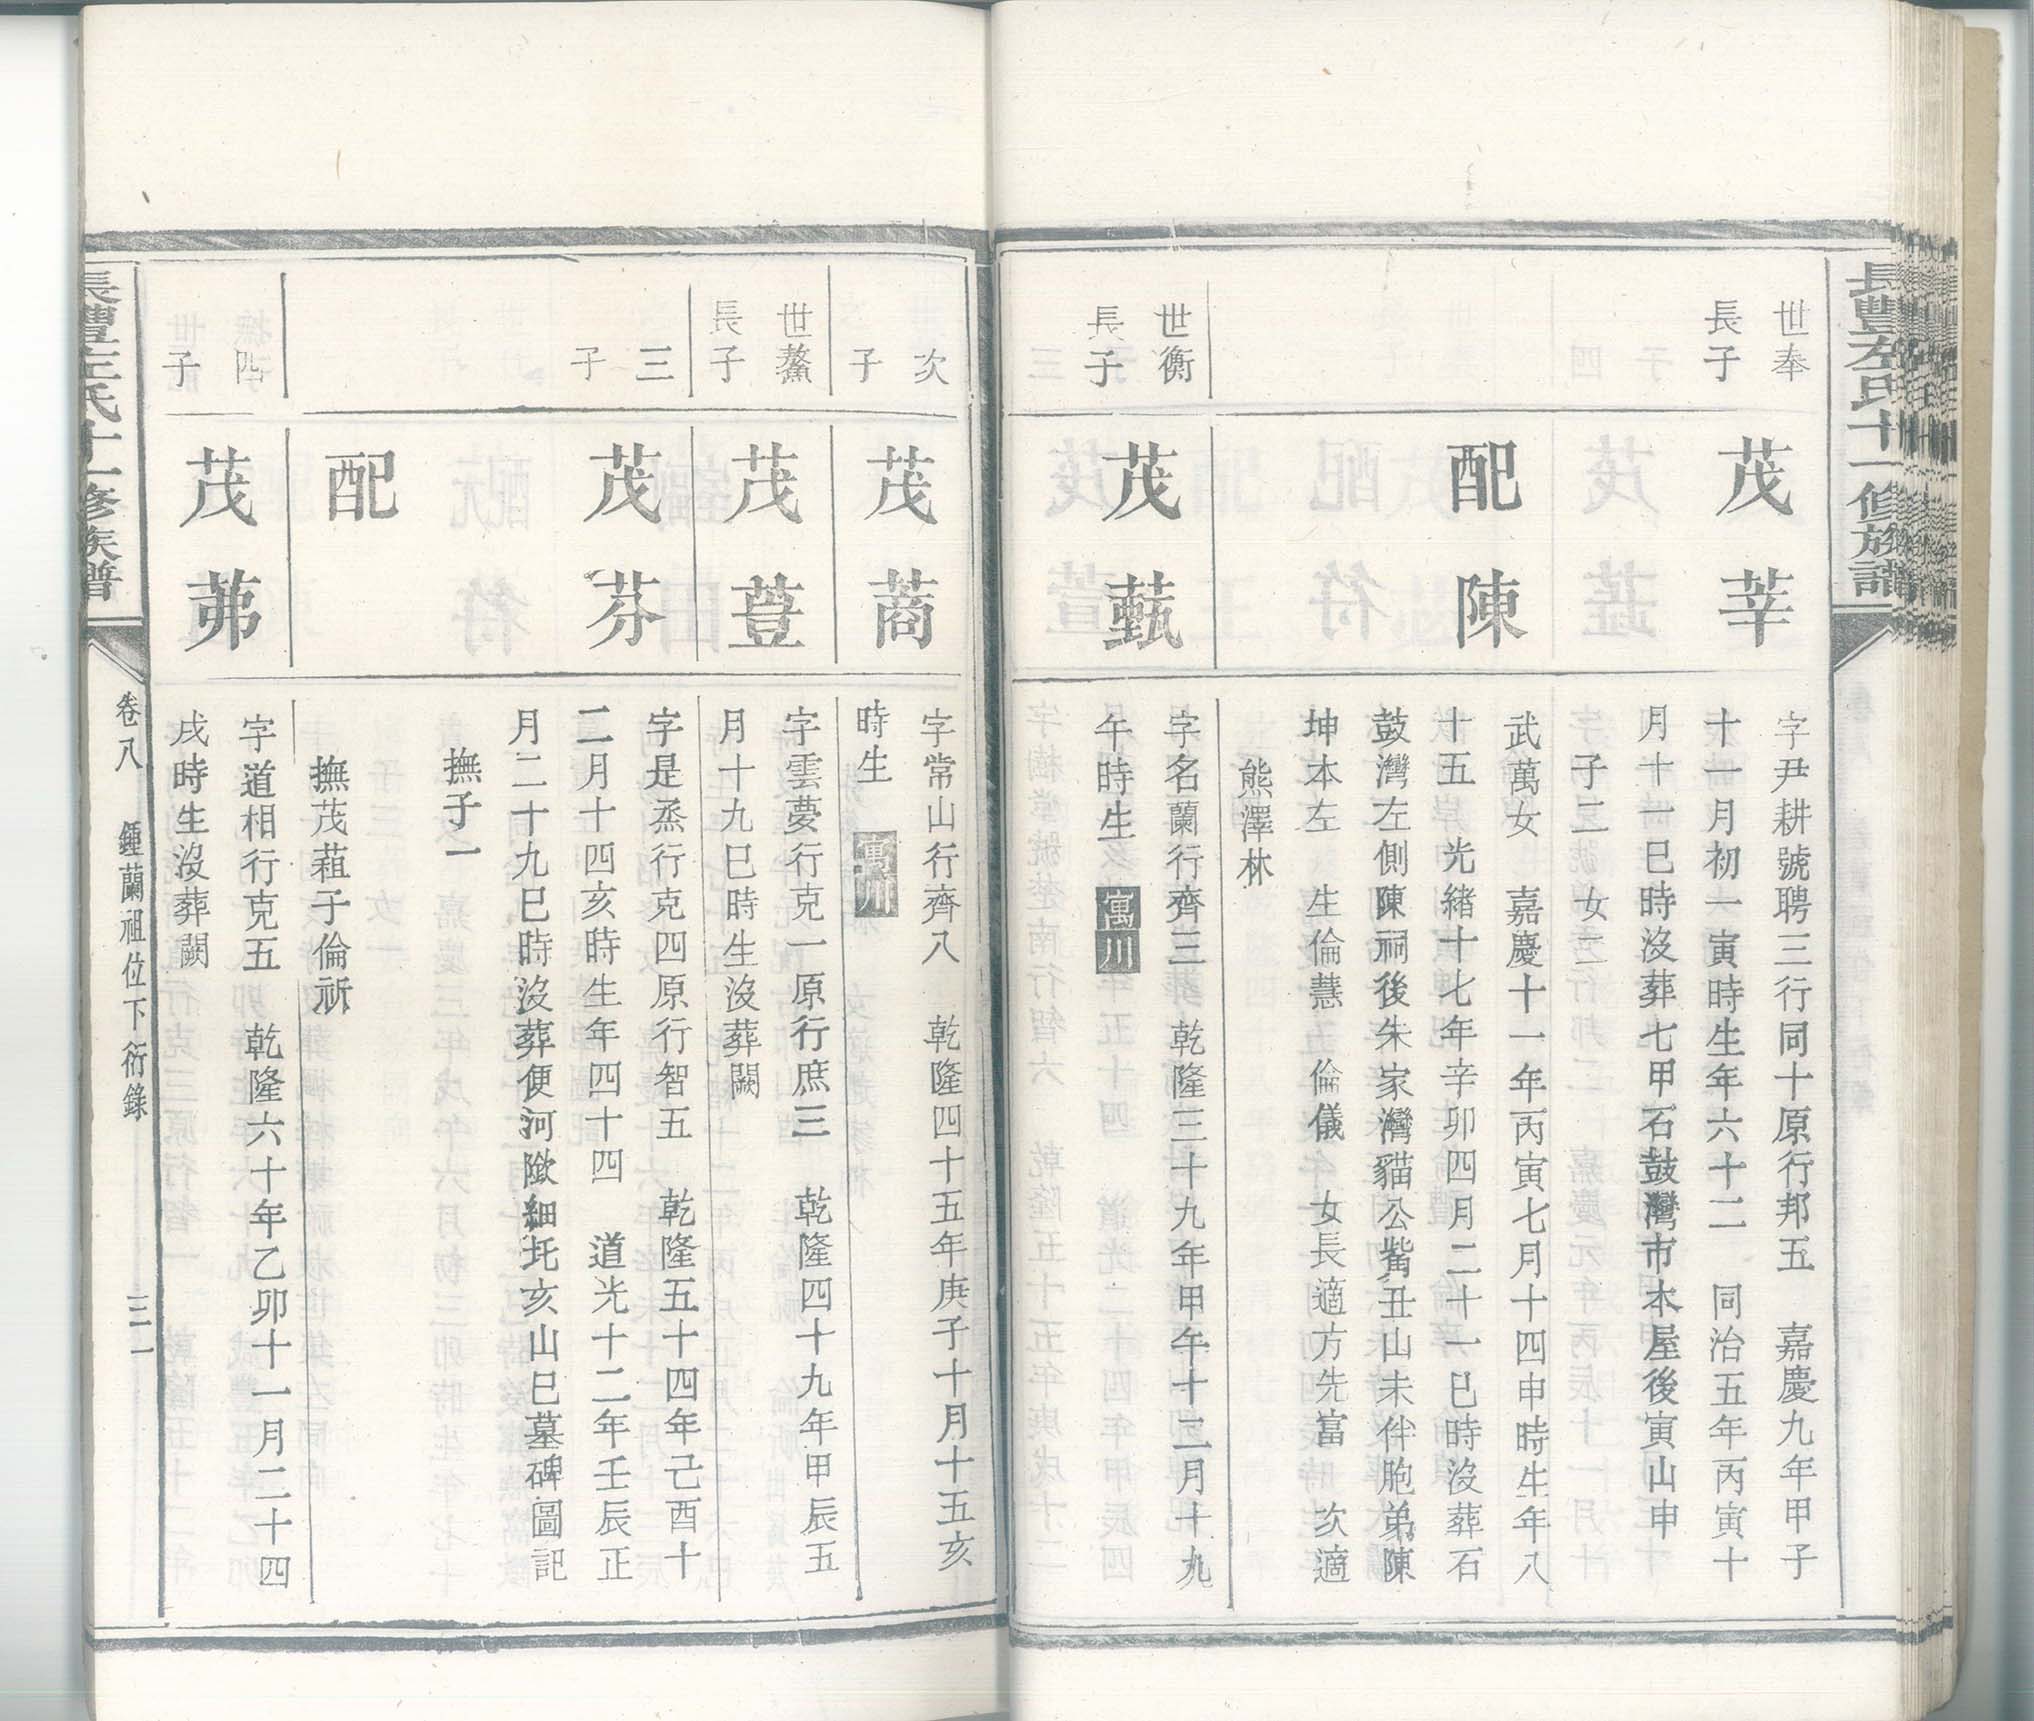 長豐左氏十一修族譜
世奉
長子
茂莘
字尹耕號聘三行同十原行邦五　嘉慶九年甲子
十一月初一寅時生年六十二　同治五年丙寅十
月十一巳時沒葬七甲石鼓灣市本屋後寅山申
子二　女二
配陳
武萬女　嘉慶十一年丙寅七月十四申時生年八
十五　光緒十七年辛卯四月二十一巳時沒葬石
鼓灣左側陳祠後朱家灣貓公觜丑山未伴胞弟陳
坤本左　生倫慧　倫儀　女長適方先富　次適
熊澤林
世衡
長子
茂蓺
字名蘭行齊三　乾隆三十九年甲午十二月十九
午時生　寓川
次
子
茂蔏
字常山行齊八　乾隆四十五年庚子十月十五亥
時生　寓川
世鰲
長子
茂荳
字雲夢行克一原行庶三　乾隆四十九年甲辰五
月十九巳時生沒葬闕
三
子
茂芬
字是烝行克四原行智五　乾隆五十四年己酉十
二月十四亥時生年四十四　道光十二年壬辰正
月二十九巳時沒葬便河墈細圫亥山巳墓碑圖記
撫子一
配
撫茂蒩子倫祈
四
子
茂茀
字道相行克五　乾隆六十年乙卯十一月二十四
戌時生沒葬闕
長豐左氏十一修族譜
卷八　鍾蘭祖位下衍錄　三一